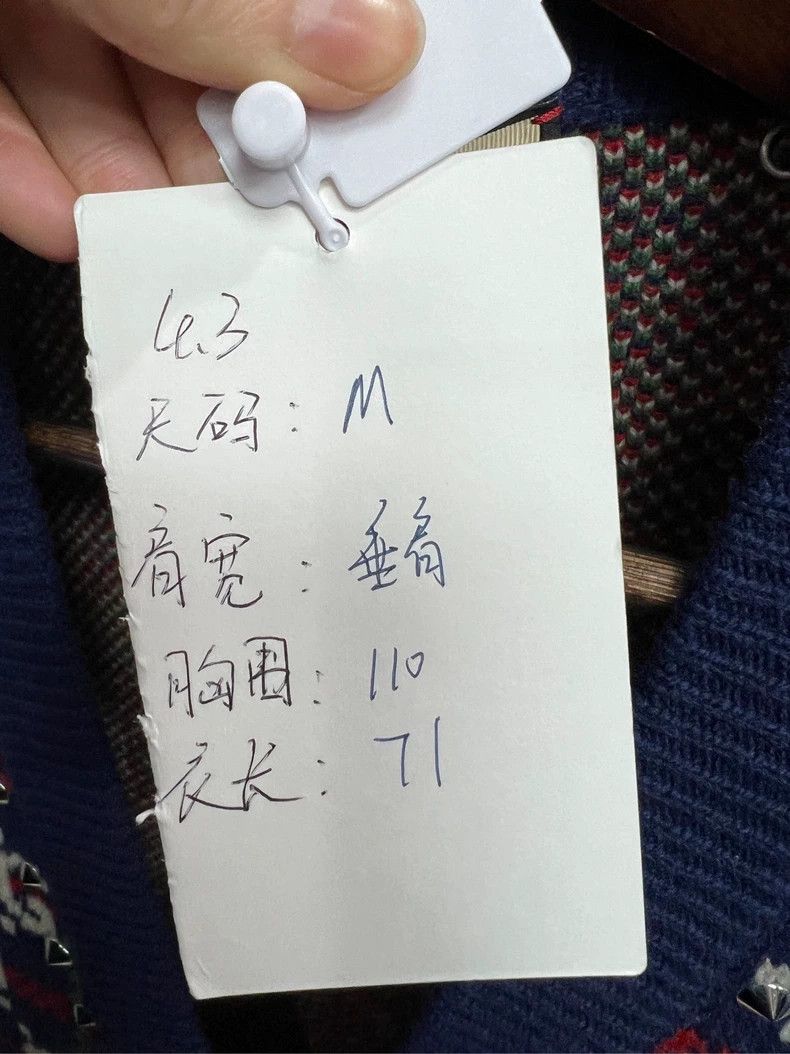 4.3
尺码：M
肩宽：垂肩
胸围：110
衣长：71